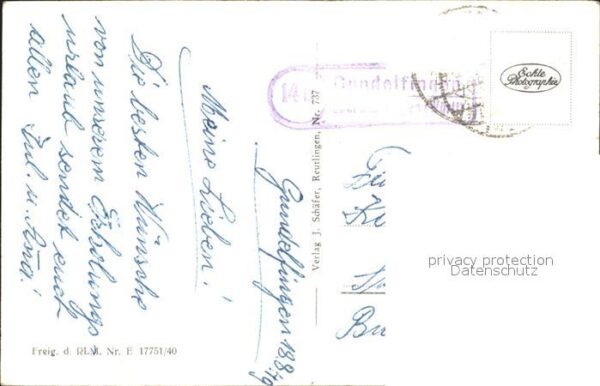 Gundelfingen 18.8.49
Meine Lieben!
Die besten Wünsche
von unserem Erholungs-
urlaub sendet euch
allen
Freig. d. RLM. Nr. E 17751/40
Verlag J. Schäfer, Reutlingen, Nr. 737
(14
Gundelfingen
Echte
Photographie
privacy protection
Datenschutz